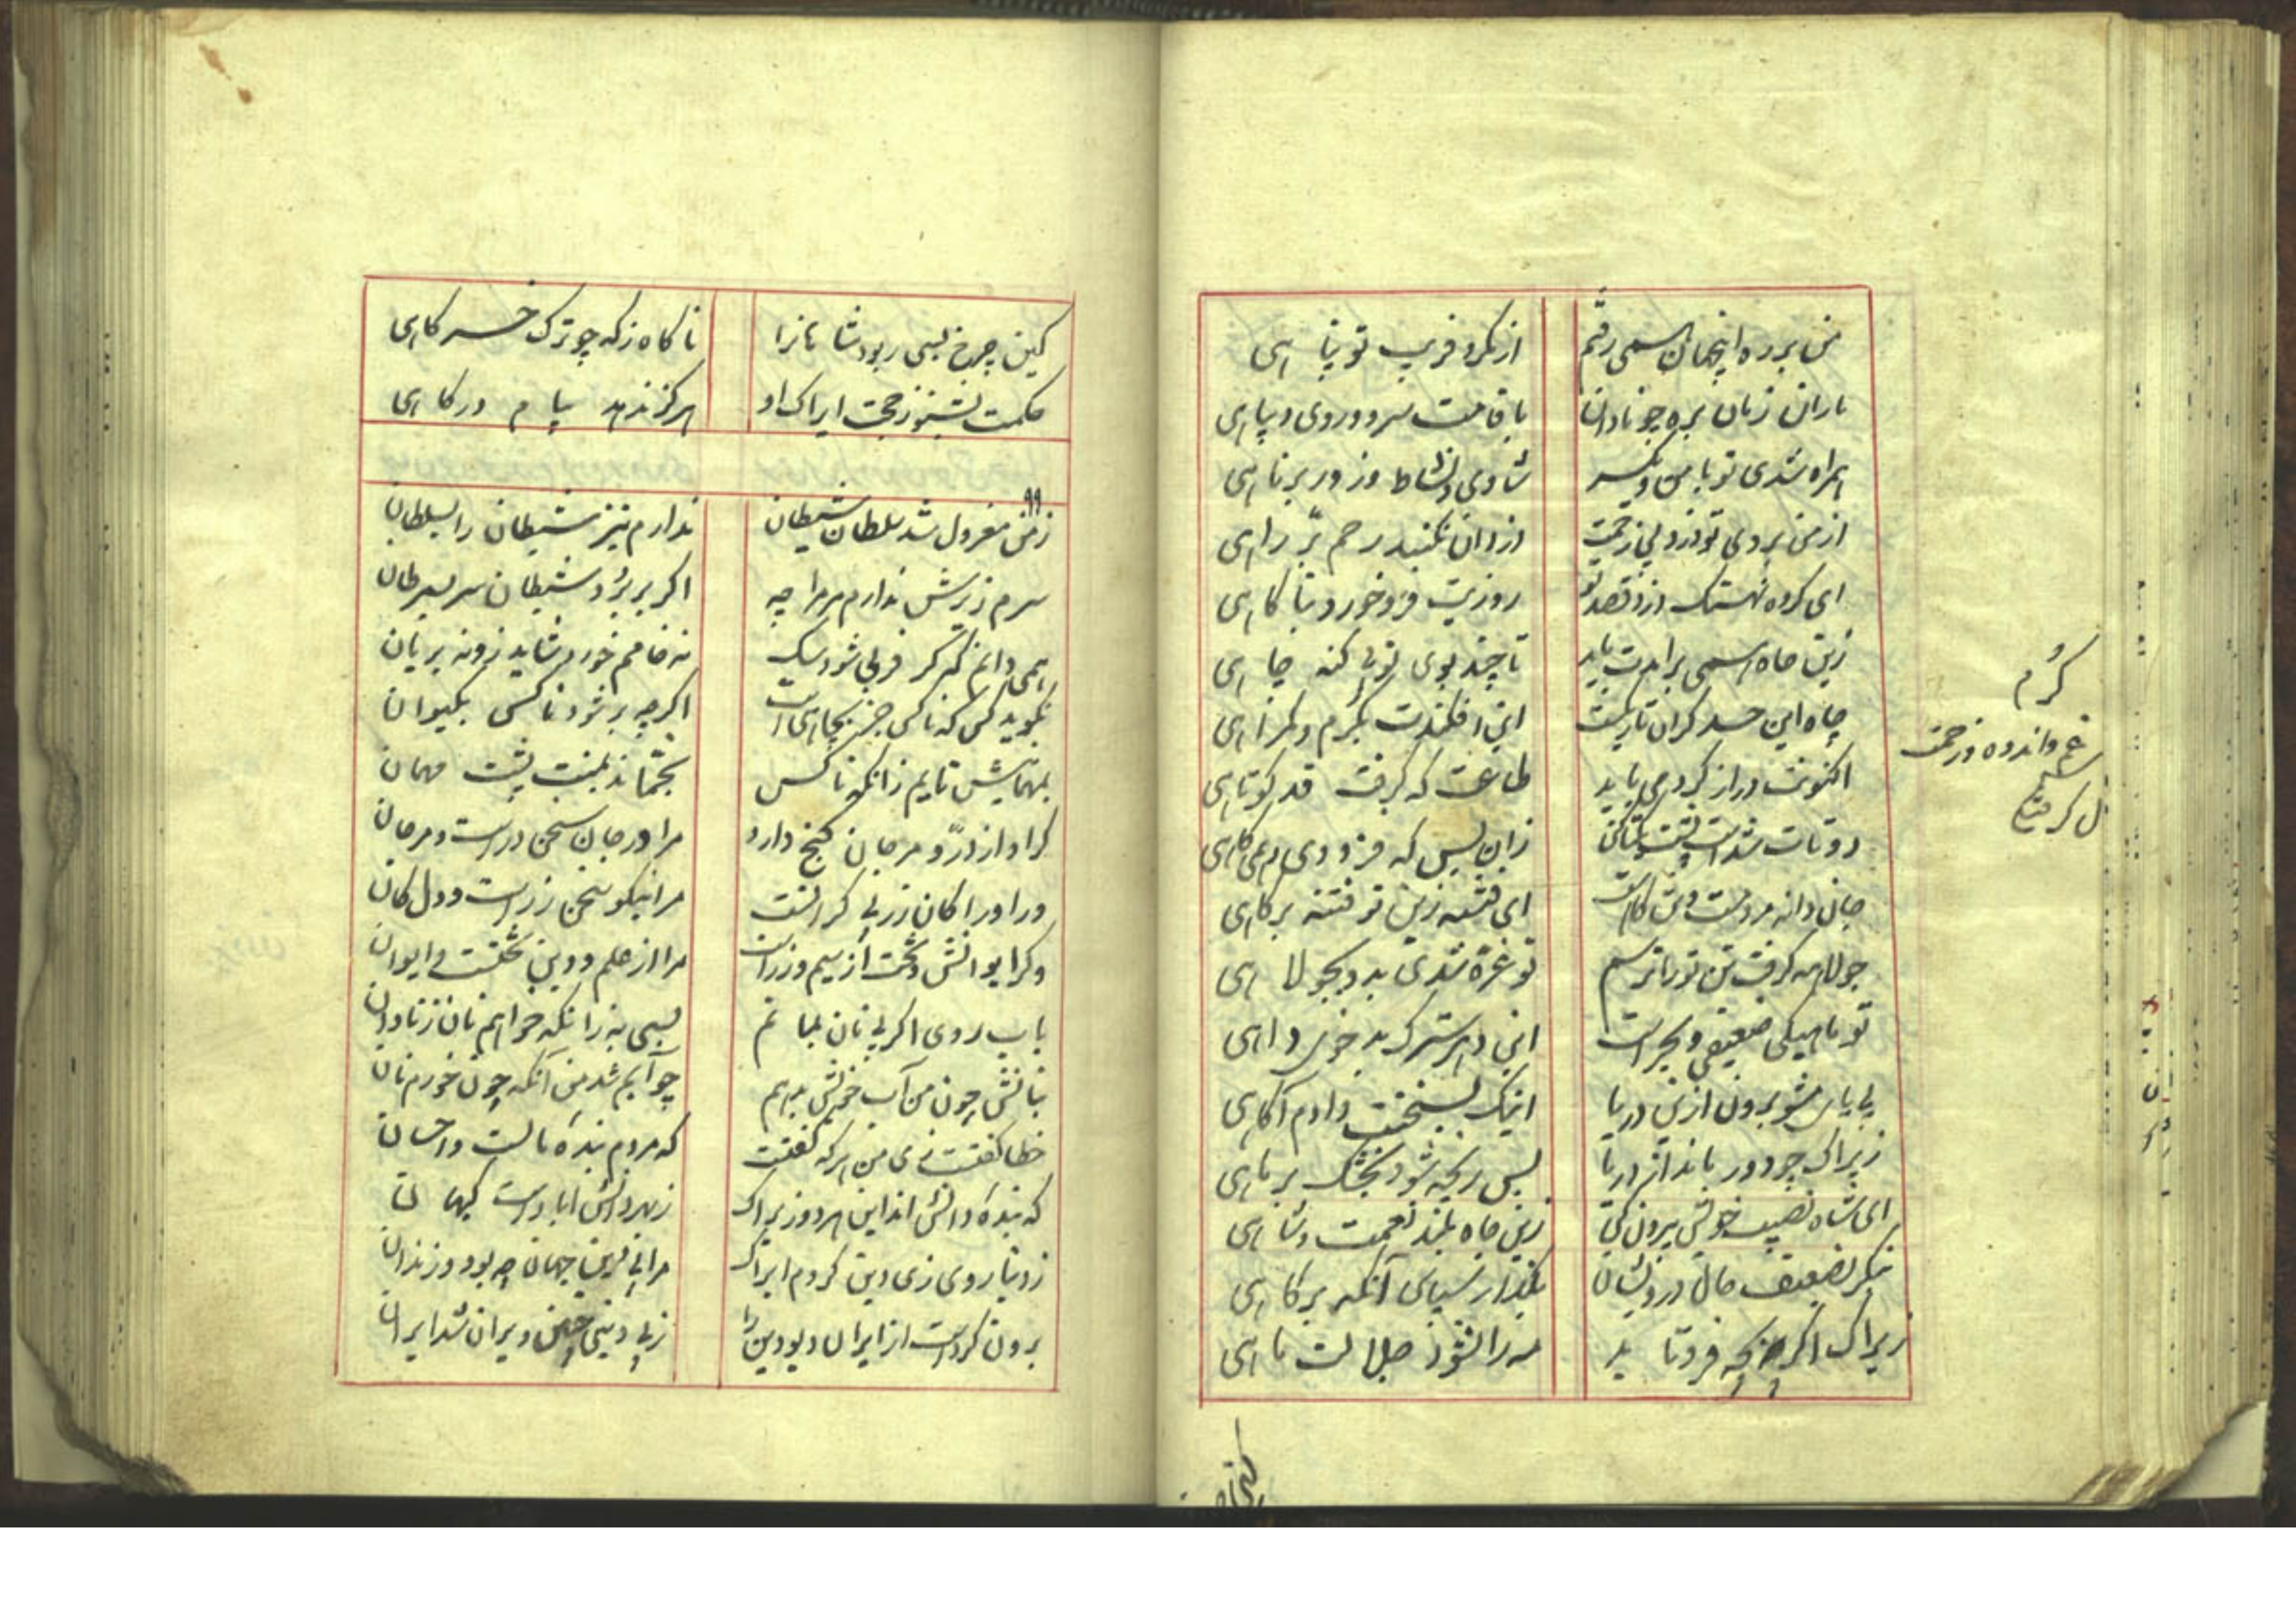 من بر ره اینچهان همی رفتم از مکر و فریب تو بپا هی
یاران زیان بره چو نادان با قامت سرو و روی دیبا هی
همراه شدی تو با من و یکسر شادی و نشاط و زور برنا هی
از من بردی تو دزد بی رحمت دزدان نکنند رحم بر را هی
ای کرده نهنگ دزد قصد تو روزیت فرو خورد بنا کا هی
زین چاه همی برآمدت باید تا چند بوی تو بی کنه چا هی
چاه این جسد کران تاریکست این افکندت بکرم و کمرا هی
اکنونت دراز کرد می باید طاعت که کرفت قد کوتا هی
دو تات شدست پشت یکتا کن زان پس که فزودی ار همی کاهی
جان دانه مردمست و تن کاهست ای فتنه زین تو فتنه بر کا هی
جولاهه کرفت تن تو را ترسم تو غره شدی بد و بجولا هی
تو ماهیکی ضعیفی و بحر است این دهر سترک بد خوی دا هی
بی یاس مشو برون ازین دریا اینک بسخنت دادم آکا هی
زیراک چو دور ماند از دریا بس رنجه شود بخشک بر ما هی
ای شاه نصیب خویش بیرون کن زین جاه بلند نعمت و شا هی
بنکر بضعیف حال درویشان بکذار سپاس آنکه بر کا هی
زیراک اکر بچه فرو تا بد مه را نشود جلالت ما هی
کرُم
غم و اندوه و زحمت
دل کرفتن
کین چرخ بسی ربود شا هانرا نا کاه ز که چو ترک خر کاهی
حکمت بشنو ز حجت ایراک او هرکز ندهد پیا م در کا هی
۹۹
ز من معزول شد سلطان شیطان ندارم نیز شیطان را بسلطان
سرم زیرش ندارم مر مرا چه اکر بر برد شیطان سر بسرطان
همی دانم که کر فربی شود سک نه خامم خورد شاید زو نه بریان
نکوید کس که ناکس جز بچاهی است اکر چه بر شود ناکس بکیوان
بمهمانیش نایم زانکه ناکس بچشماند بمنت پشت مهمان
کر او از در و مرجان کنج دارد مرا در جان سخن در است و مرجان
ور او را کان زر بی کرانست مرا نیکو سخن زرست و دل کان
و کر ایوانش و تخت از سیم و زر است مرا از علم و دین تختست و ایوان
باب روی اکر بی نان بما نم بسی به زانکه خواهم نان ز نادان
بنانش چون من آب خویش بدهم چو آبم شد من آنکه چون خورم نان
خطا کفتست زی من هرکه کفتست که مردم بنده مالست و احسان
که بنده دانش اند این هردو زیراک زبهر دانش ابادست کیها ن
ز دنیا روی زی دین کردم ایراک مرا بی دین جهان چه بود و زندان
برون کردست از ایران دیو دین را ز بی دینی چنین ویران شد ایران